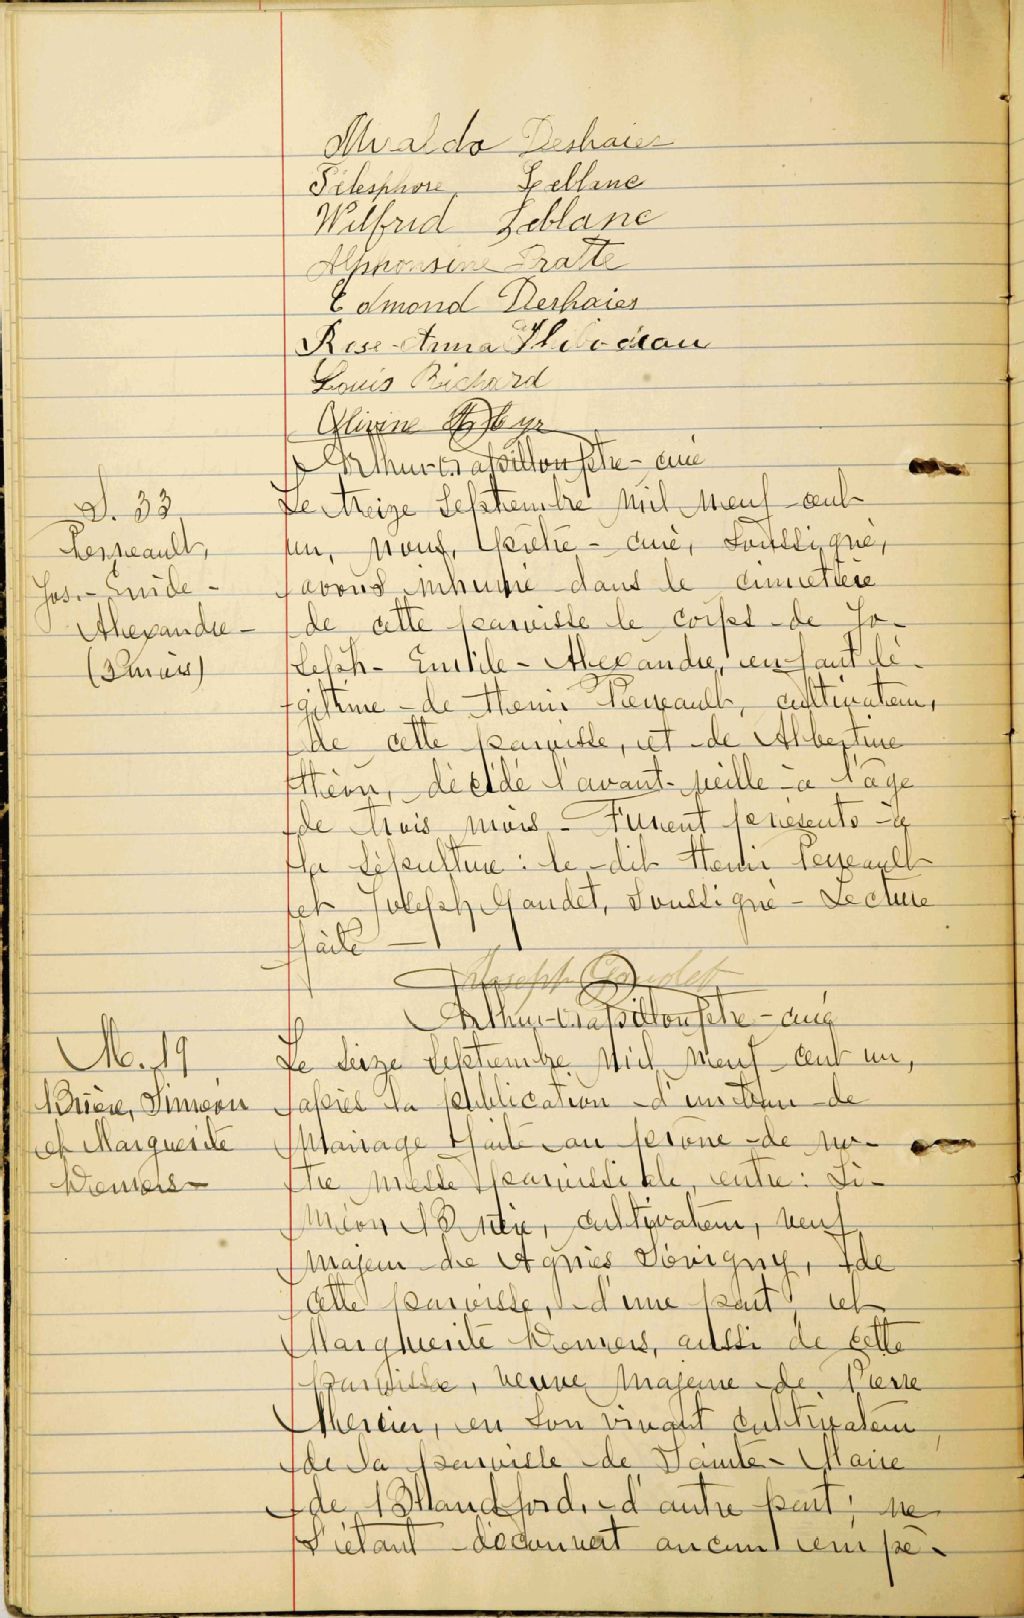 Alvaldo Deshaies
Télesphore Leblanc
Wilfrid Leblanc
Alphonsine Pratte
Edmond Deshaies
Rose-Anna Thibodeau
Louis Richard
Olivine Cyr
Arthur Papillon Ptre-curé
S. 33
Perreault,
Jos.-Emile-
Alexandre-
(3 mois)
Le treize septembre mil neuf cent
un, nous, prêtre-curé, soussigné,
avons inhumé dans le cimetière
de cette paroisse le corps de Jo-
seph-Emile-Alexandre, enfant lé-
gitime de Henri Perreault, cultivateur,
de cette paroisse, et de Albertine
Héon, décédé l'avant-veille à l'âge
de trois mois - Furent présents à
la sépulture: le dit Henri Perreault
et Joseph Gaudet, soussigné - Lecture
faite -
Joseph Gaudet
Arthur Papillon Ptre-curé
M. 19
Brière, Siméon
et Marguerite
Demers-
Le seize septembre mil neuf cent un,
après la publication d'un ban de
mariage faite au prône de no-
tre messe paroissiale, entre: Si-
méon Brière, cultivateur, veuf
majeur de Agnès Sévigny, de
cette paroisse, d'une part, et
Marguerite Demers, aussi de cette
paroisse, veuve majeure de Pierre
Mercier, en son vivant cultivateur
de la paroisse de Sainte-Marie
de Blandford, d'autre part; ne
s'étant découvert aucun empê-